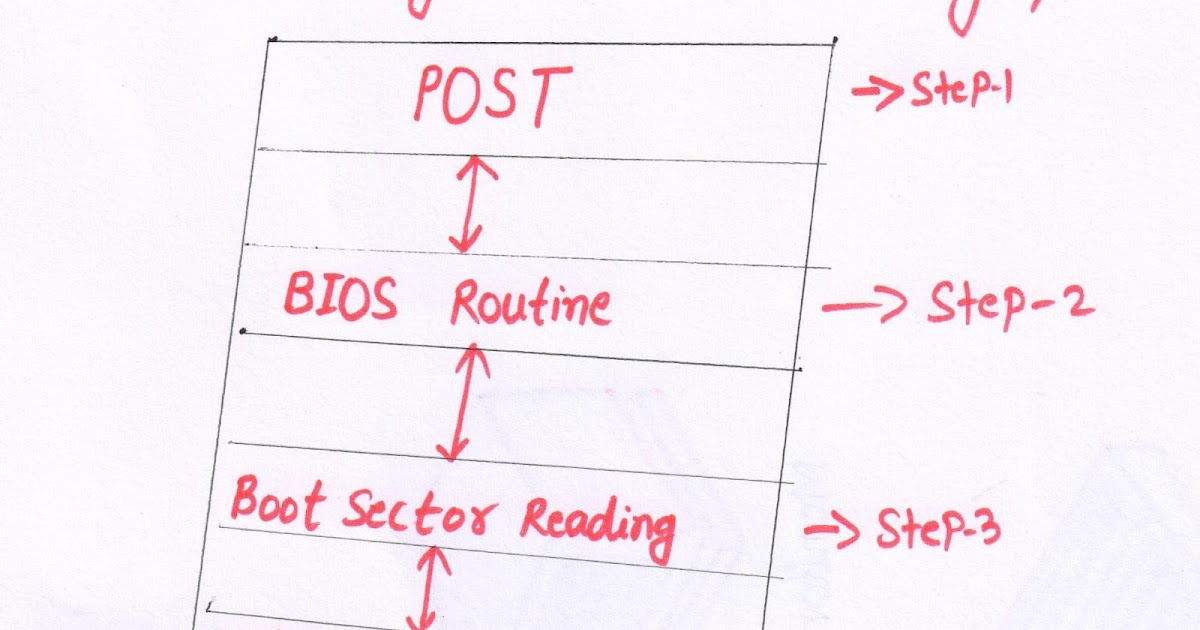 POST → SteP-1
BIOS Routine → SteP-2
Boot Sector Reading → SteP-3